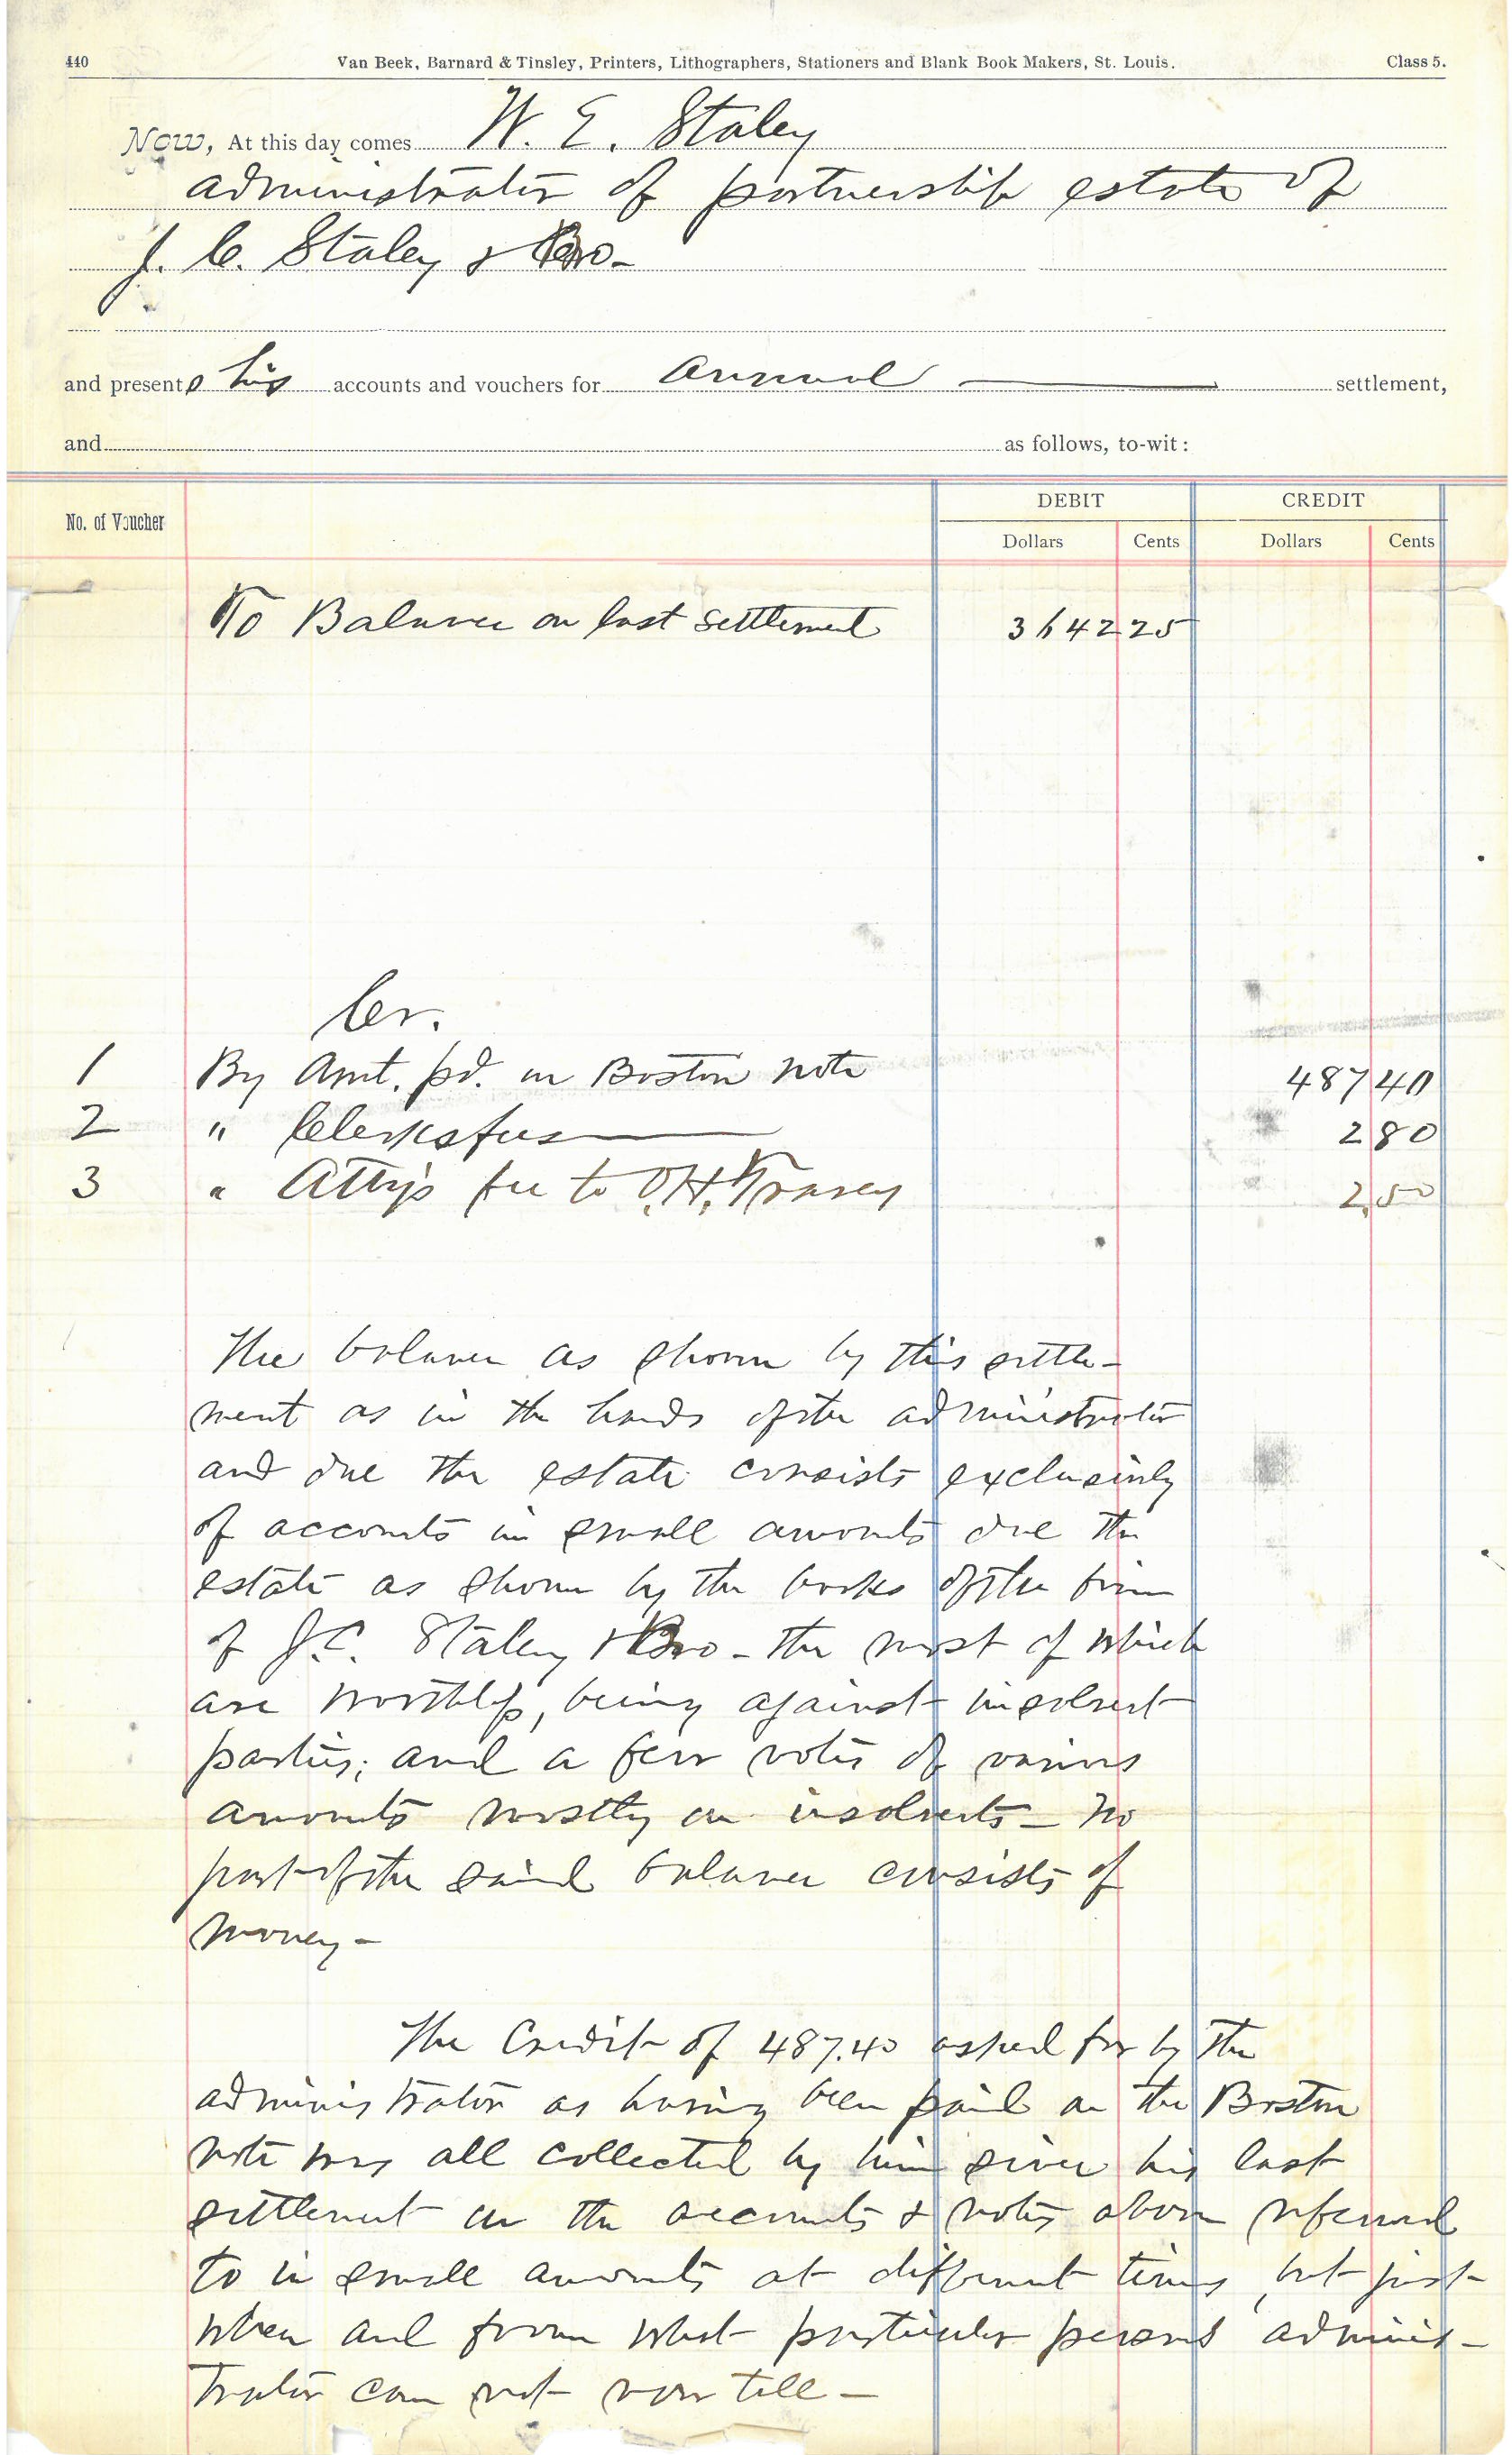 440 Van Beek, Barnard & Tinsley, Printers, Lithographers, Stationers and Blank Book Makers, St. Louis. Class 5.
Now, At this day comes W. E. Staley
administrator of partnership estate of
J. C. Staley & Bro-
and presents his accounts and vouchers for annual settlement,
and as follows, to-wit:
No. of Voucher DEBIT CREDIT
Dollars Cents Dollars Cents
To Balance on last settlement 3642 25
Cr.
1 By Amt. pd. on Boston note 487 40
2 " Clerks fees 2 80
3 " Atty's fee to O.H. 2,50
The balance as shown by this settle-
ment as in the hands of the administrator
and due the estate consists exclusively
of accounts in small amounts due the
estate as shown by the books of the firm
of J.C. Staley & Bro - the most of which
are worthless, being against insolvent
parties; and a few notes of various
amounts mostly on insolvents - No
part of the said balance consists of
money -
The Credit of 487.40 asked for by the
administrator as having been paid on the Boston
note was all collected by him since his last
settlement on the accounts & notes above referred
to in small amounts at different times, but just
when and from what particular persons adminis-
trator can not now tell -